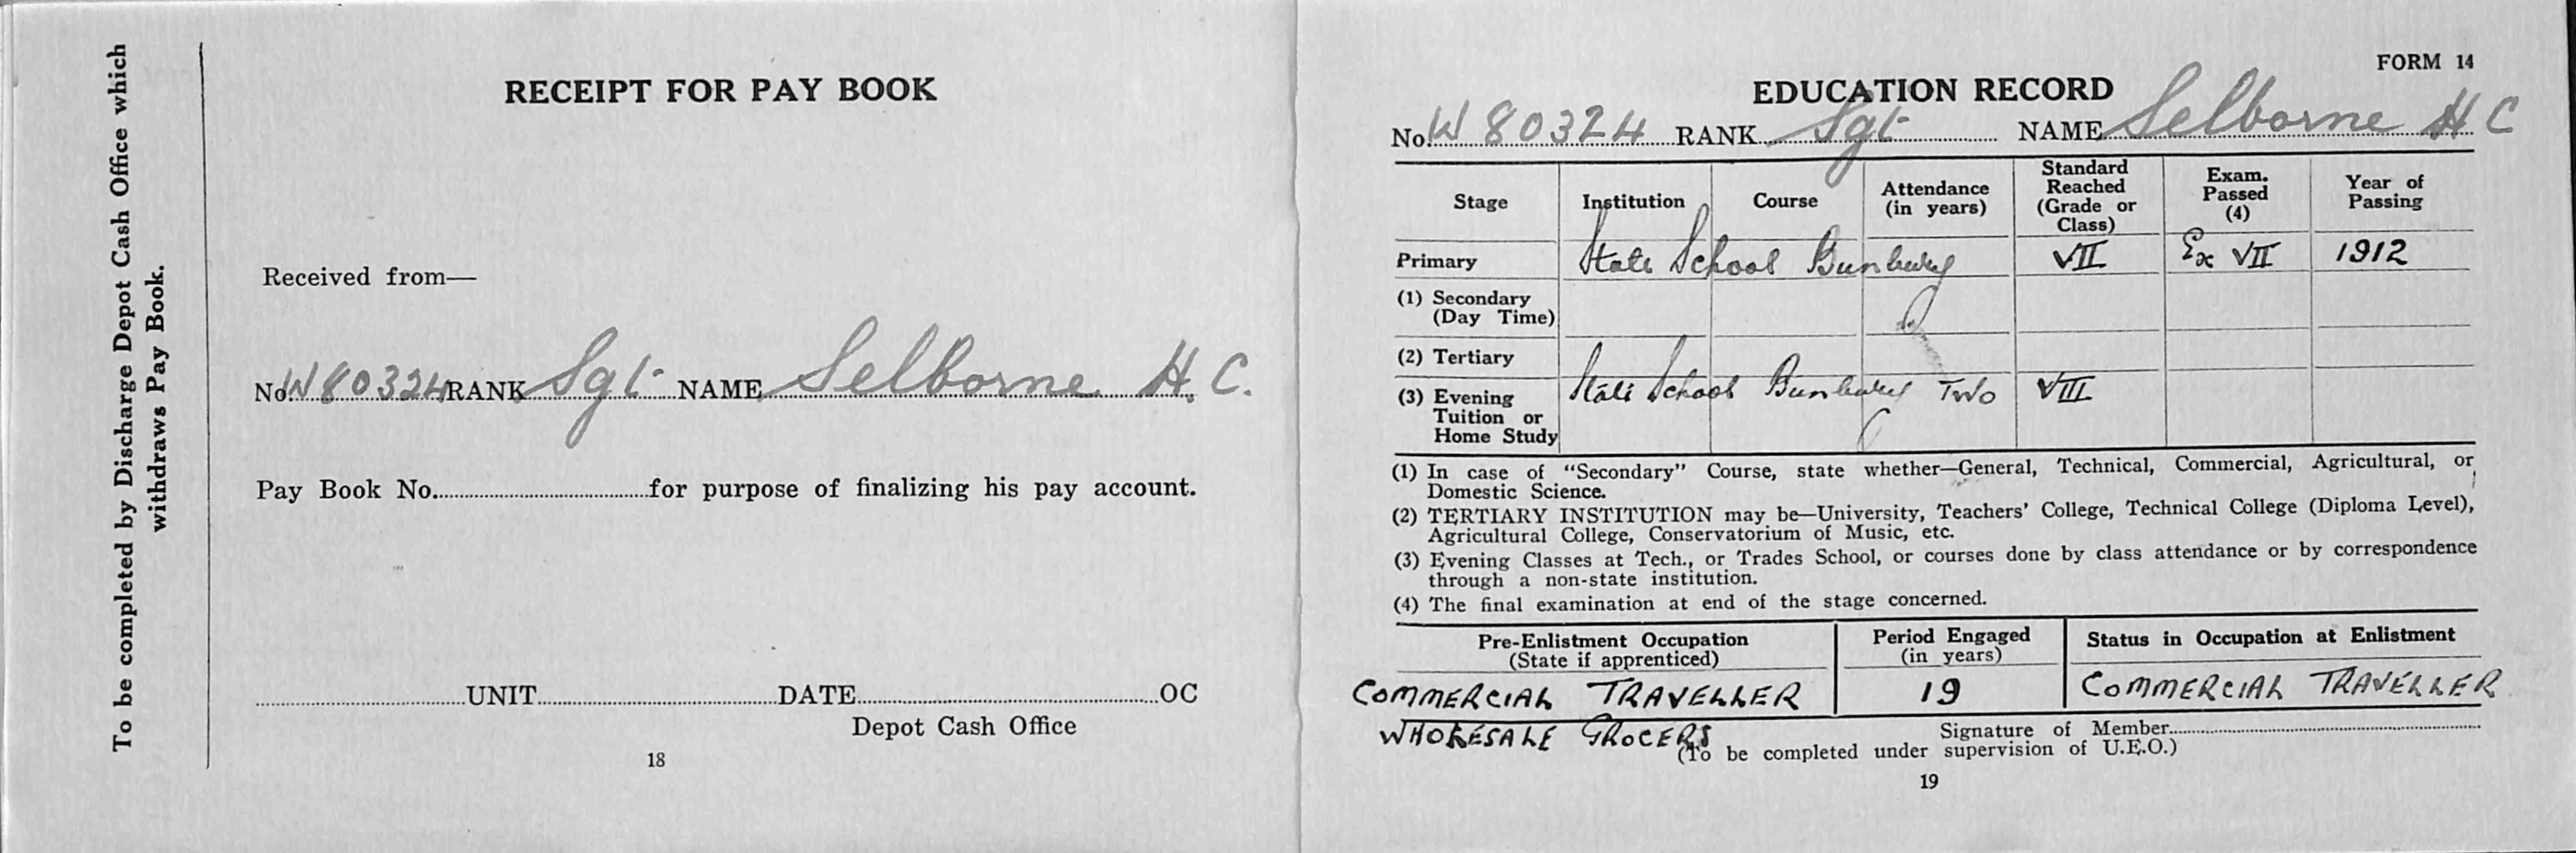 To be completed by Discharge Depot Cash Office which
withdraws Pay Book.
RECEIPT FOR PAY BOOK
Received from—
No. W80324 RANK Sgt NAME Selborne H. C.
Pay Book No. for purpose of finalizing his pay account.
UNIT DATE OC
Depot Cash Office
18
FORM 14
EDUCATION RECORD
No. W80324 RANK Sgt NAME Selborne H C
Stage Institution Course Attendance (in years) Standard Reached (Grade or Class) Exam. Passed (4) Year of Passing
Primary State School Bunbury VII Ex VII 1912
(1) Secondary (Day Time)
(2) Tertiary
(3) Evening Tuition or Home Study State School Bunbury Two VIII
(1) In case of "Secondary" Course, state whether—General, Technical, Commercial, Agricultural, or
Domestic Science.
(2) TERTIARY INSTITUTION may be—University, Teachers' College, Technical College (Diploma Level),
Agricultural College, Conservatorium of Music, etc.
(3) Evening Classes at Tech., or Trades School, or courses done by class attendance or by correspondence
through a non-state institution.
(4) The final examination at end of the stage concerned.
Pre-Enlistment Occupation (State if apprenticed) Period Engaged (in years) Status in Occupation at Enlistment
COMMERCIAL TRAVELLER 19 COMMERCIAL TRAVELLER
WHOLESALE GROCERS
Signature of Member
(To be completed under supervision of U.E.O.)
19